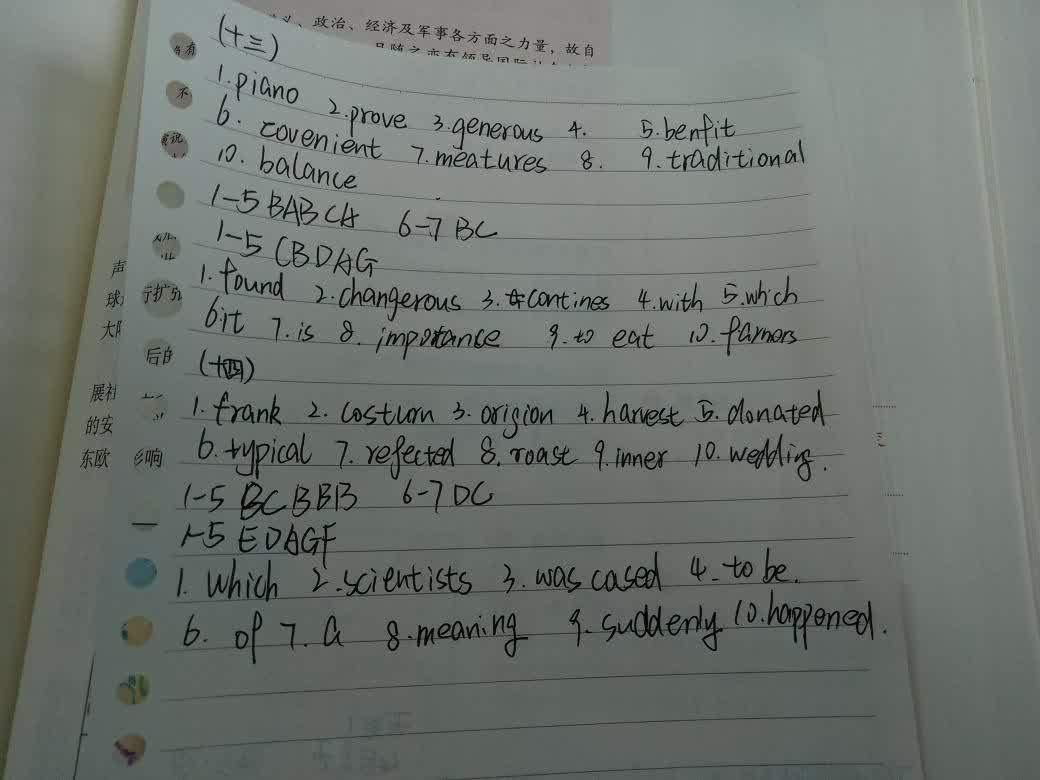 政治、经济及军事各方面之力量，故自
(十三)
1.piano 2.prove 3.generous 4. 5.benfit
6. covenient 7.meatures 8. 9.traditional
10. balance
1-5 BABCA 6-7 BC
1-5 CBDAG
1. found 2.changerous 3.contines 4.with 5.which
6.it 7.is 8. importance 9.to eat 10.famors
(十四)
1.frank 2. costum 3. origion 4. harvest 5. donated
6.typical 7. refected 8. roast 9.inner 10. wedding.
1-5 BCBBB 6-7 DC
1-5 EDAGF
1. Which 2.scientists 3. was cased 4. to be.
6. of 7. a 8.meaning 9. suddenly 10.happened.
有
不
说
声
球
大
行扩
后自
展社
的安
东欧 影响